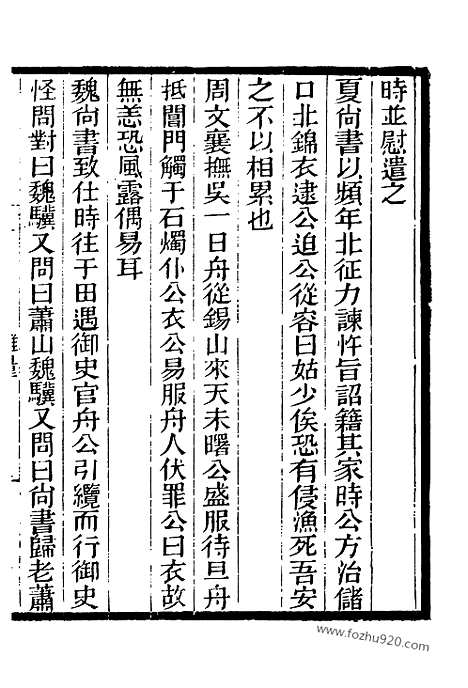 時並慰遣之
夏尚書以頻年北征力諫忤旨詔籍其家時公方治儲
口北錦衣逮公迫公從容曰姑少俟恐有侵漁死吾安
之不以相累也
周文襄撫吳一日舟從錫山來天未曙公盛服待旦舟
抵閶門觸于石燭仆公衣公易服舟人伏罪公曰衣故
無恙恐風露偶易耳
魏尚書致仕時往于田遇御史官舟公引纜而行御史
怪問對曰魏驥又問曰蕭山魏驥又問曰尚書歸老蕭
www.fozhu920.com